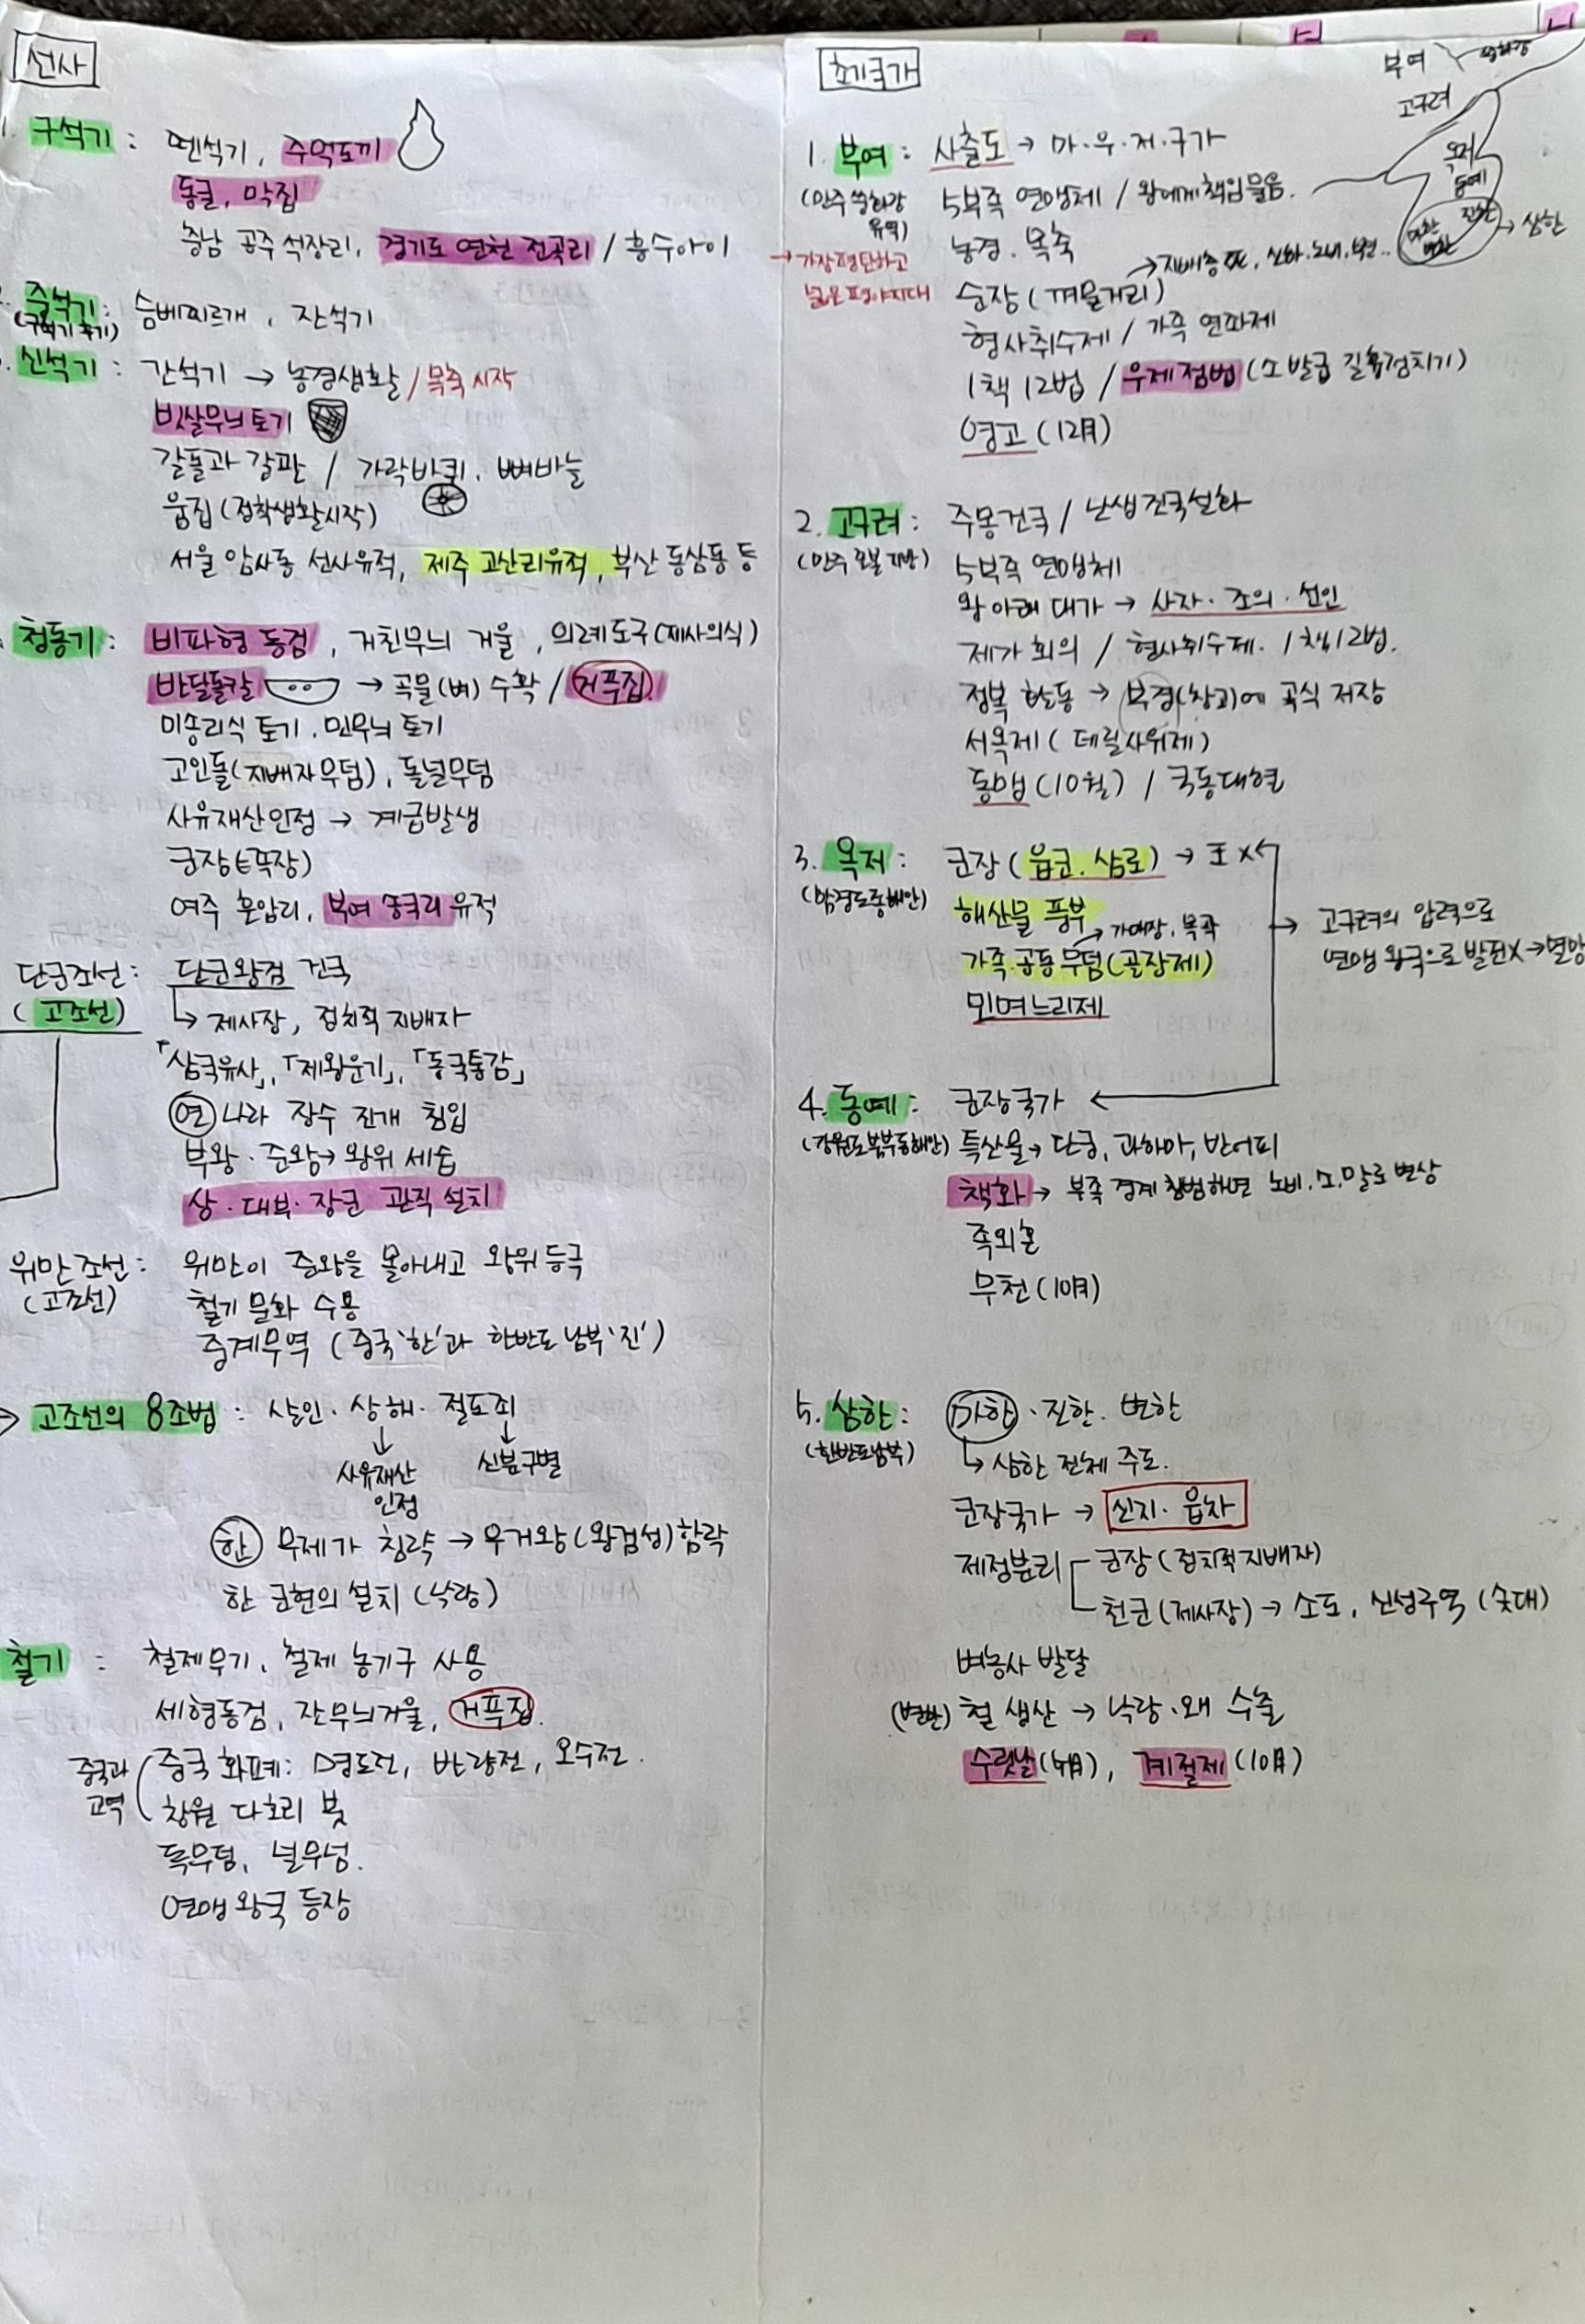 선사
1. 구석기 : 뗀석기, 주먹도끼
동굴, 막집
충남 공주 석장리, 경기도 연천 전곡리 / 흥수아이
중석기 : 슴베찌르개, 잔석기
(구석기 후기)
신석기 : 간석기 → 농경생활 / 목축 시작
빗살무늬토기
갈돌과 갈판 / 가락바퀴, 뼈바늘
움집 (정착생활시작)
서울 암사동 선사유적, 제주 고산리유적, 부산 동삼동 등
청동기 : 비파형 동검, 거친무늬 거울, 의례도구 (제사의식)
반달돌칼 → 곡물(벼) 수확 / 거푸집
미송리식 토기, 민무늬 토기
고인돌(지배자무덤), 돌널무덤
사유재산인정 → 계급발생
군장(족장)
여주 흔암리, 부여 송국리 유적
단군조선 : 단군왕검 건국
(고조선) ↳ 제사장, 정치적 지배자
「삼국유사」, 「제왕운기」, 「동국통감」
연나라 장수 진개 침입
부왕·준왕 → 왕위 세습
상·대부·장군 관직 설치
위만조선 : 위만이 준왕을 몰아내고 왕위 등극
(고조선) 철기 문화 수용
중계무역 (중국 '한'과 한반도 남부 '진')
→ 고조선의 8조법 : 살인·상해·절도죄
↓ ↓
사유재산 인정 신분구별
한 무제가 침략 → 우거왕(왕검성) 함락
한 군현의 설치 (낙랑)
철기 : 철제무기, 철제 농기구 사용
세형동검, 잔무늬거울, 거푸집.
중국과 교역 ( 중국 화폐 : 명도전, 반량전, 오수전.
창원 다호리 붓
독무덤, 널무덤.
연맹 왕국 등장
초기국가
부여 송화강
고구려
옥저
동예
마한 진한 변한 → 삼한
1. 부여 : 사출도 → 마·우·저·구가
(만주 쑹화강 유역) 5부족 연맹체 / 왕에게 책임물음.
→ 가장 평탄하고 넓은 평야지대
농경·목축
순장 (껴묻거리) → 지배층 또, 신하·노비·부인..
형사취수제 / 가족 연좌제
1책 12법 / 우제점법 (소 발굽 길흉점치기)
영고 (12月)
2. 고구려 : 주몽건국 / 난생 건국설화
(만주 졸본 지방) 5부족 연맹체
왕 아래 대가 → 사자·조의·선인
제가 회의 / 형사취수제. 1책12법.
정복 활동 → 부경(창고)에 곡식 저장
서옥제 (데릴사위제)
동맹 (10월) / 국동대혈
3. 옥저 : 군장 (읍군·삼로) → 王 X
(함경도동해안) 해산물 풍부
가족 공동 무덤 (골장제) → 가매장, 목곽
민며느리제
→ 고구려의 압력으로
연맹 왕국으로 발전X → 멸망
4. 동예 : 군장국가
(강원도북부동해안) 특산물 → 단궁, 과하마, 반어피
책화 → 부족 경계 침범하면 노비·소·말로 변상
족외혼
무천 (10月)
5. 삼한 : 마한·진한·변한
(한반도남부) ↳ 삼한 전체 주도.
군장국가 → 신지·읍차
제정분리 군장 (정치적지배자)
천군 (제사장) → 소도, 신성구역 (솟대)
벼농사 발달
(변한) 철 생산 → 낙랑·왜 수출
수릿날 (5月), 계절제 (10月)